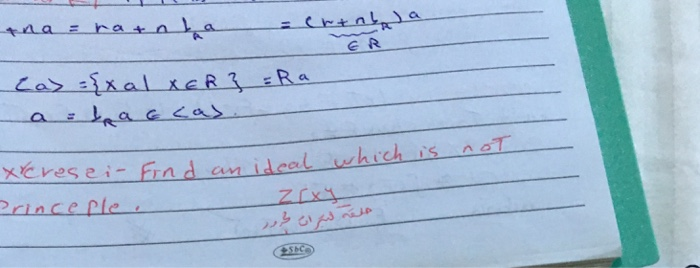 +na = ra + n 1_R a = (r + n 1_R) a
∈ R
<a> = {xa | x ∈ R} = Ra
a = 1_R a ∈ <a>.
xcrese:- Find an ideal which is not
Princeple.
Z[x]
SbCo